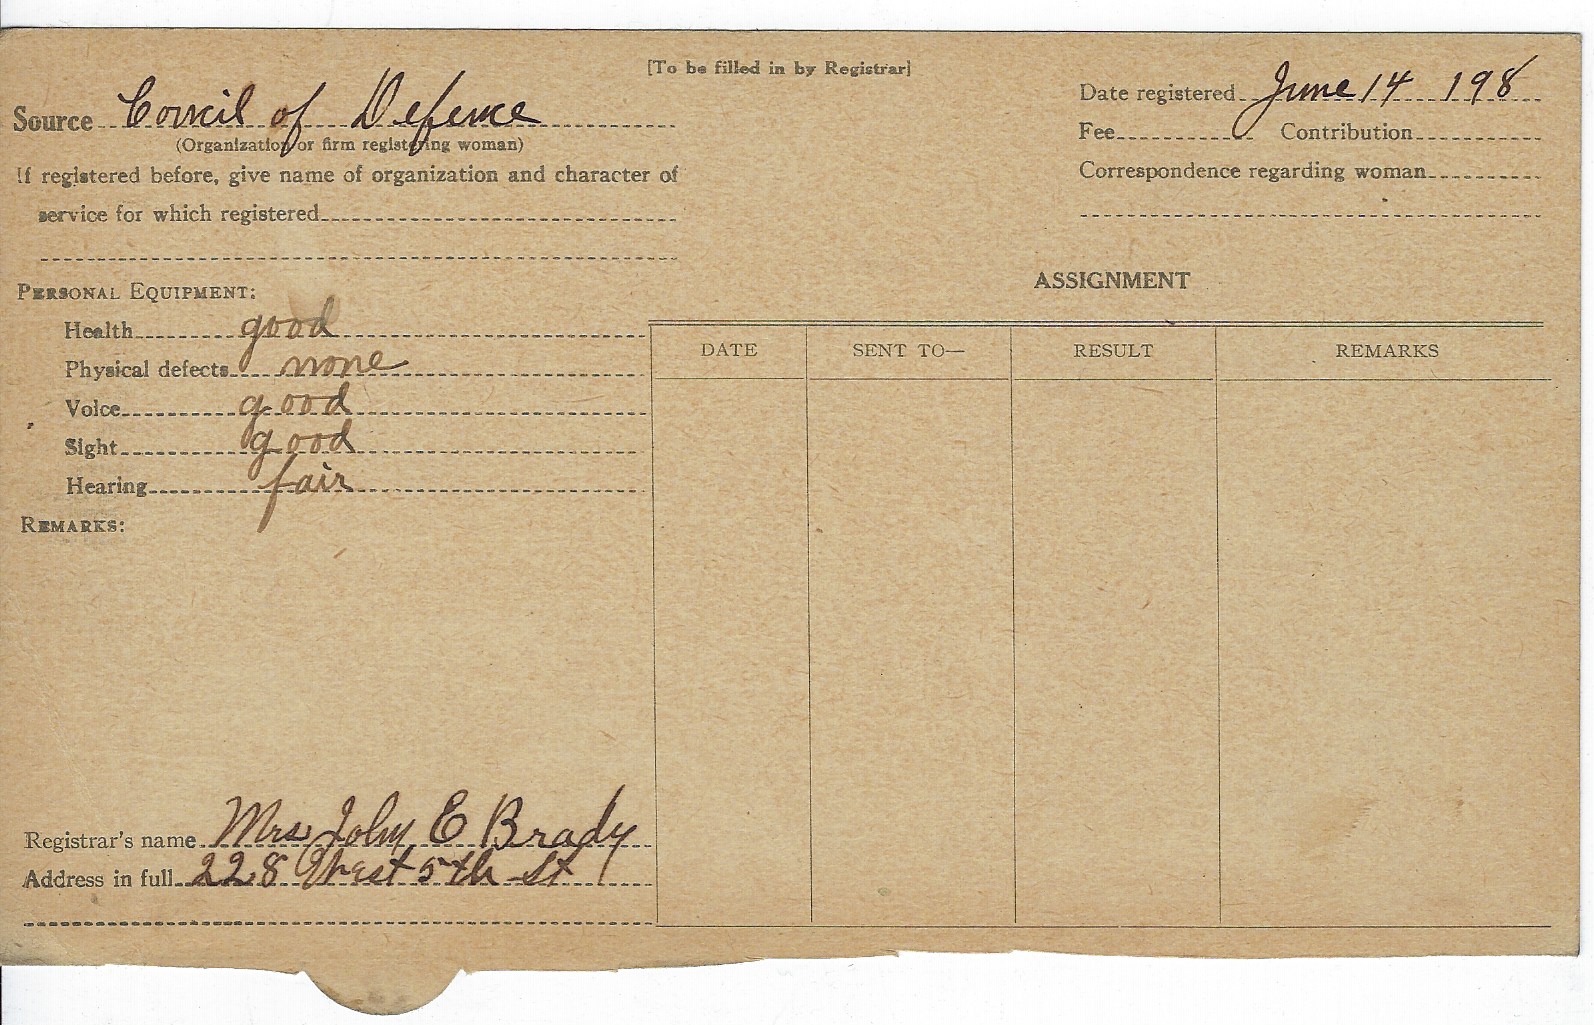 [To be filled in by Registrar]
Source Council of Defence
(Organization or firm registering woman)
If registered before, give name of organization and character of
service for which registered
Date registered June 14 198
Fee Contribution
Correspondence regarding woman
PERSONAL EQUIPMENT:
Health good
Physical defects none
Voice good
Sight good
Hearing fair
REMARKS:
ASSIGNMENT
DATE SENT TO— RESULT REMARKS
Registrar's name Mrs John E Brady
Address in full 228 West 5th St